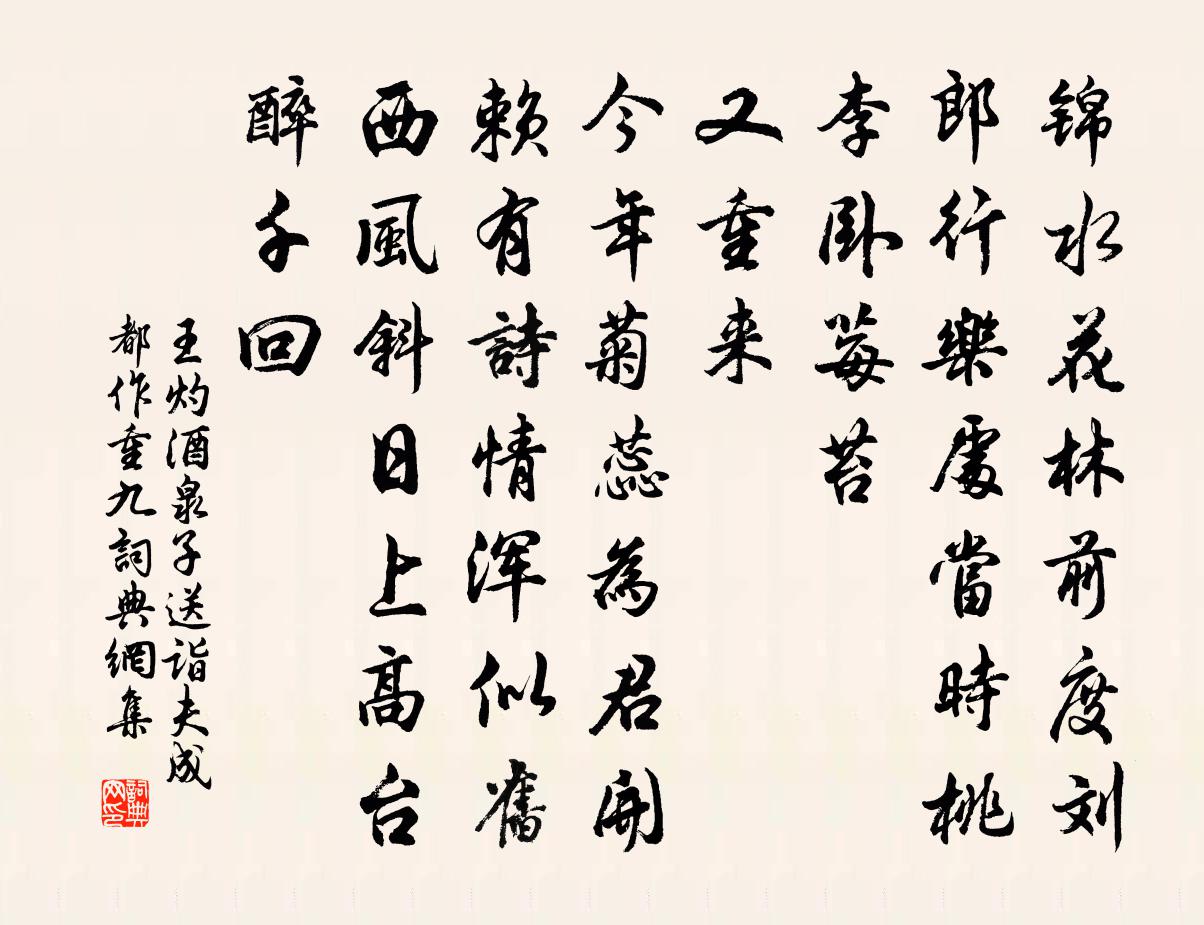 锦水花林前度刘
郎行樂處當時桃
李卧莓苔
又重来
今年菊蕊為君開
賴有詩情浑似舊
西風斜日上高台
醉千回
王灼酒泉子送詣夫成
都作重九詞典網集
詞典
网印